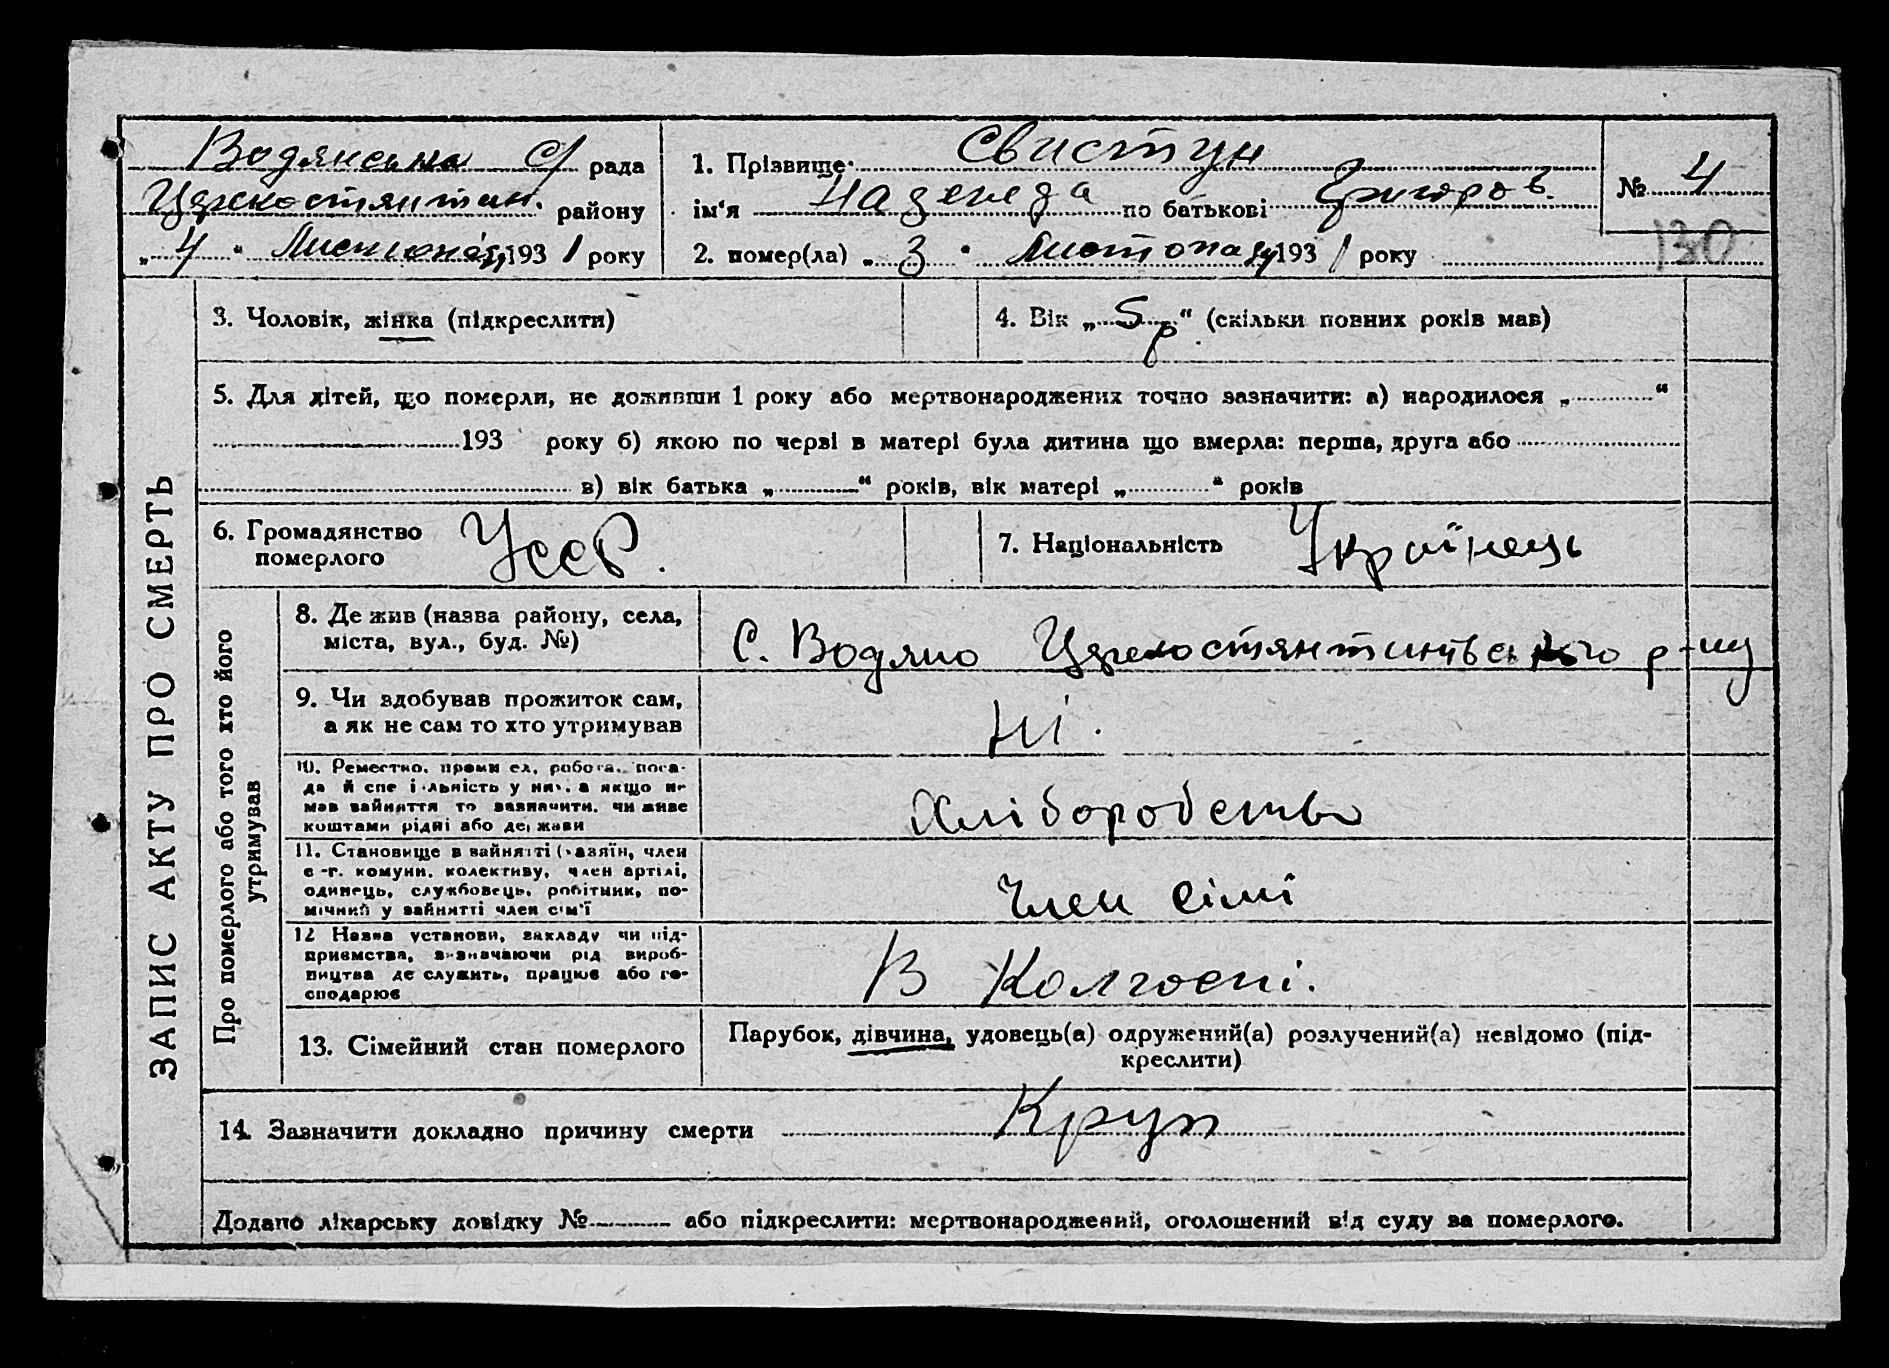 Водянська с/ рада
Царекостянтин. району
„4“ Листопаду 1931 року
1. Прізвище Свистун
ім‘я Надежда по батькові Григоров.
2. помер(ла) „3“ Листопаду 1931 року
№ 4
130
3. Чоловік, жінка (підкреслити)
4. Вік „5 р“ (скільки повних років мав)
5. Для дітей, що померли, не доживши 1 року або мертвонароджених точно зазначити: а) народилося „ “
193 року б) якою по черві в матері була дитина що вмерла: перша, друга або
в) вік батька „ “ років, вік матері „ “ років
6. Громадянство
померлого
Усср.
7. Національність Українець
ЗАПИС АКТУ ПРО СМЕРТЬ
Про померлого або того хто його
утримував
8. Де жив (назва району, села,
міста, вул., буд. №)
С. Водяно Царекостянтинівського р-ну
9. Чи здобував прожиток сам,
а як не сам то хто утримував
Ні.
10. Ремество, промисел, робота, поса-
да й спеціяльність у ній, а якщо не
мав зайняття то зазначити, чи живе
коштами рідні або держави
Хліборобство
11. Становище в зайнятті (хазяїн, член
с-г. комуни, колективу, член артілі,
одинець, службовець, робітник, по-
мічний у зайнятті член сім‘ї
Член сімї
12 Назва установи, закладу чи під-
приємства, визначаючи рід вироб-
ництва де служить, працює або го-
сподарює
В Колгоспі.
13. Сімейний стан померлого
Парубок, дівчина, удовець(а) одружений(а) розлучений(а) невідомо (під-
креслити)
14. Зазначити докладно причину смерти Круп
Додано лікарську довідку № або підкреслити: мертвонароджений, оголошений від суду за померлого.